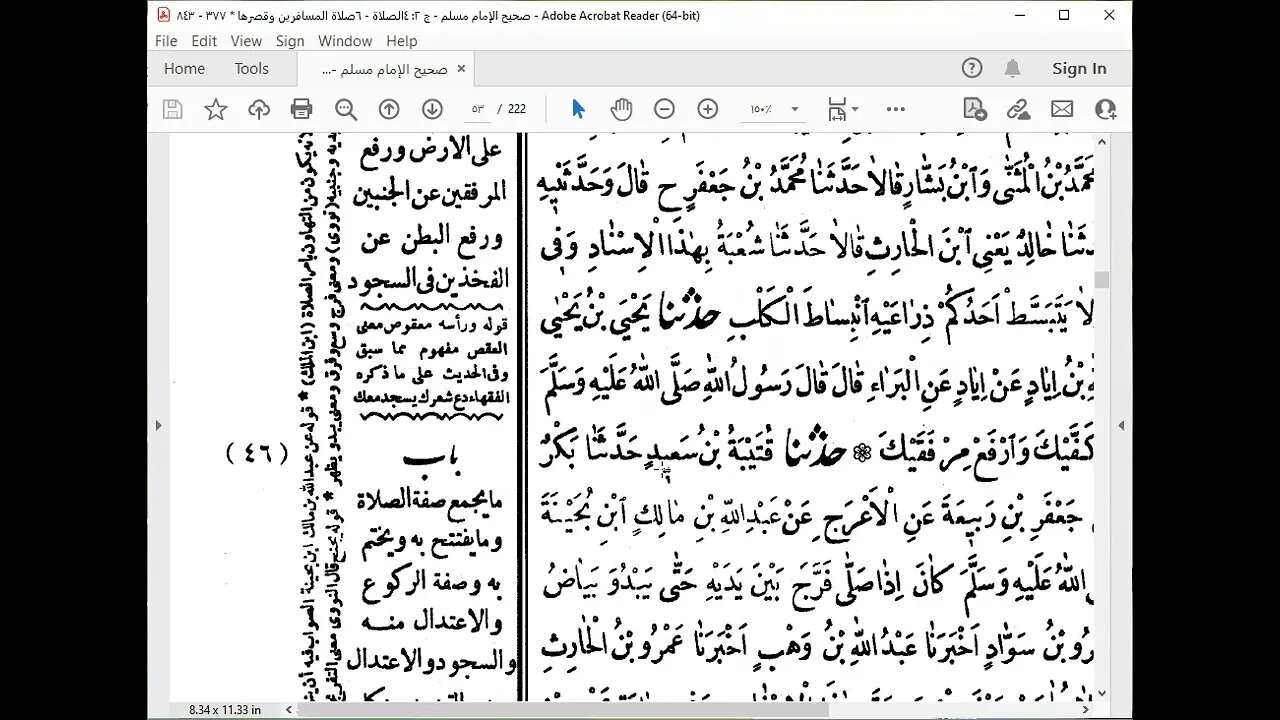 صحيح الإمام مسلم - ج ٢: ٤الصلاة - ٦صلاة المسافرين وقصرها * ٣٧٧ - ٨٤٣ - Adobe Acrobat Reader (64-bit)
File Edit View Sign Window Help
Home Tools صحيح الإمام مسلم -... × Sign In
٥٣ / 222 ١٥٠٪
مُحَمَّدُ بْنُ الْمُثَنَّى وَابْنُ بَشَّارٍ قَالاَ حَدَّثَنَا مُحَمَّدُ بْنُ جَعْفَرٍ ح قَالَ وَحَدَّثَنِيهِ
خَالِدٌ يَعْنِى ابْنَ الْحَارِثِ قَالاَ حَدَّثَنَا شُعْبَةُ بِهٰذَا الْاِسْنَادِ وَفِى
لاَ يَتَبَسَّطْ اَحَدُكُمْ ذِرَاعَيْهِ انْبِسَاطَ الْكَلْبِ حدثنا يَحْيَى بْنُ يَحْيٰى
بْنُ اِيَادٍ عَنْ اِيَادٍ عَنِ الْبَرَاءِ قَالَ قَالَ رَسُولُ اللّٰهِ صَلَّى اللّٰهُ عَلَيْهِ وَسَلَّمَ
كَفَّيْكَ وَارْفَعْ مِرْفَقَيْكَ ۞ حدثنا قُتَيْبَةُ بْنُ سَعِيدٍ حَدَّثَنَا بَكْرٌ
جَعْفَرِ بْنِ رَبِيعَةَ عَنِ الْاَعْرَجِ عَنْ عَبْدِاللّٰهِ بْنِ مَالِكٍ ابْنِ بُحَيْنَةَ
اللّٰهُ عَلَيْهِ وَسَلَّمَ كَانَ اِذَا صَلَّى فَرَّجَ بَيْنَ يَدَيْهِ حَتّٰى يَبْدُوَ بَيَاضُ
بْنُ سَوَّادٍ اَخْبَرَنَا عَبْدُ اللّٰهِ بْنُ وَهْبٍ اَخْبَرَنَا عَمْرُو بْنُ الْحَارِثِ
على الارض ورفع
المرفقين عن الجنبين
ورفع البطن عن
الفخذين فى السجود
قوله ورأسه معقوص معنى
العقص مفهوم مما سبق
وفى الحديث على ما ذكره
الفقهاء دع شعرك يسجد معك
باب
(٤٦)
ما يجمع صفة الصلاة
وما يفتتح به ويختم
به وصفة الركوع
والاعتدال منه
والسجود والاعتدال
8.34 x 11.33 in